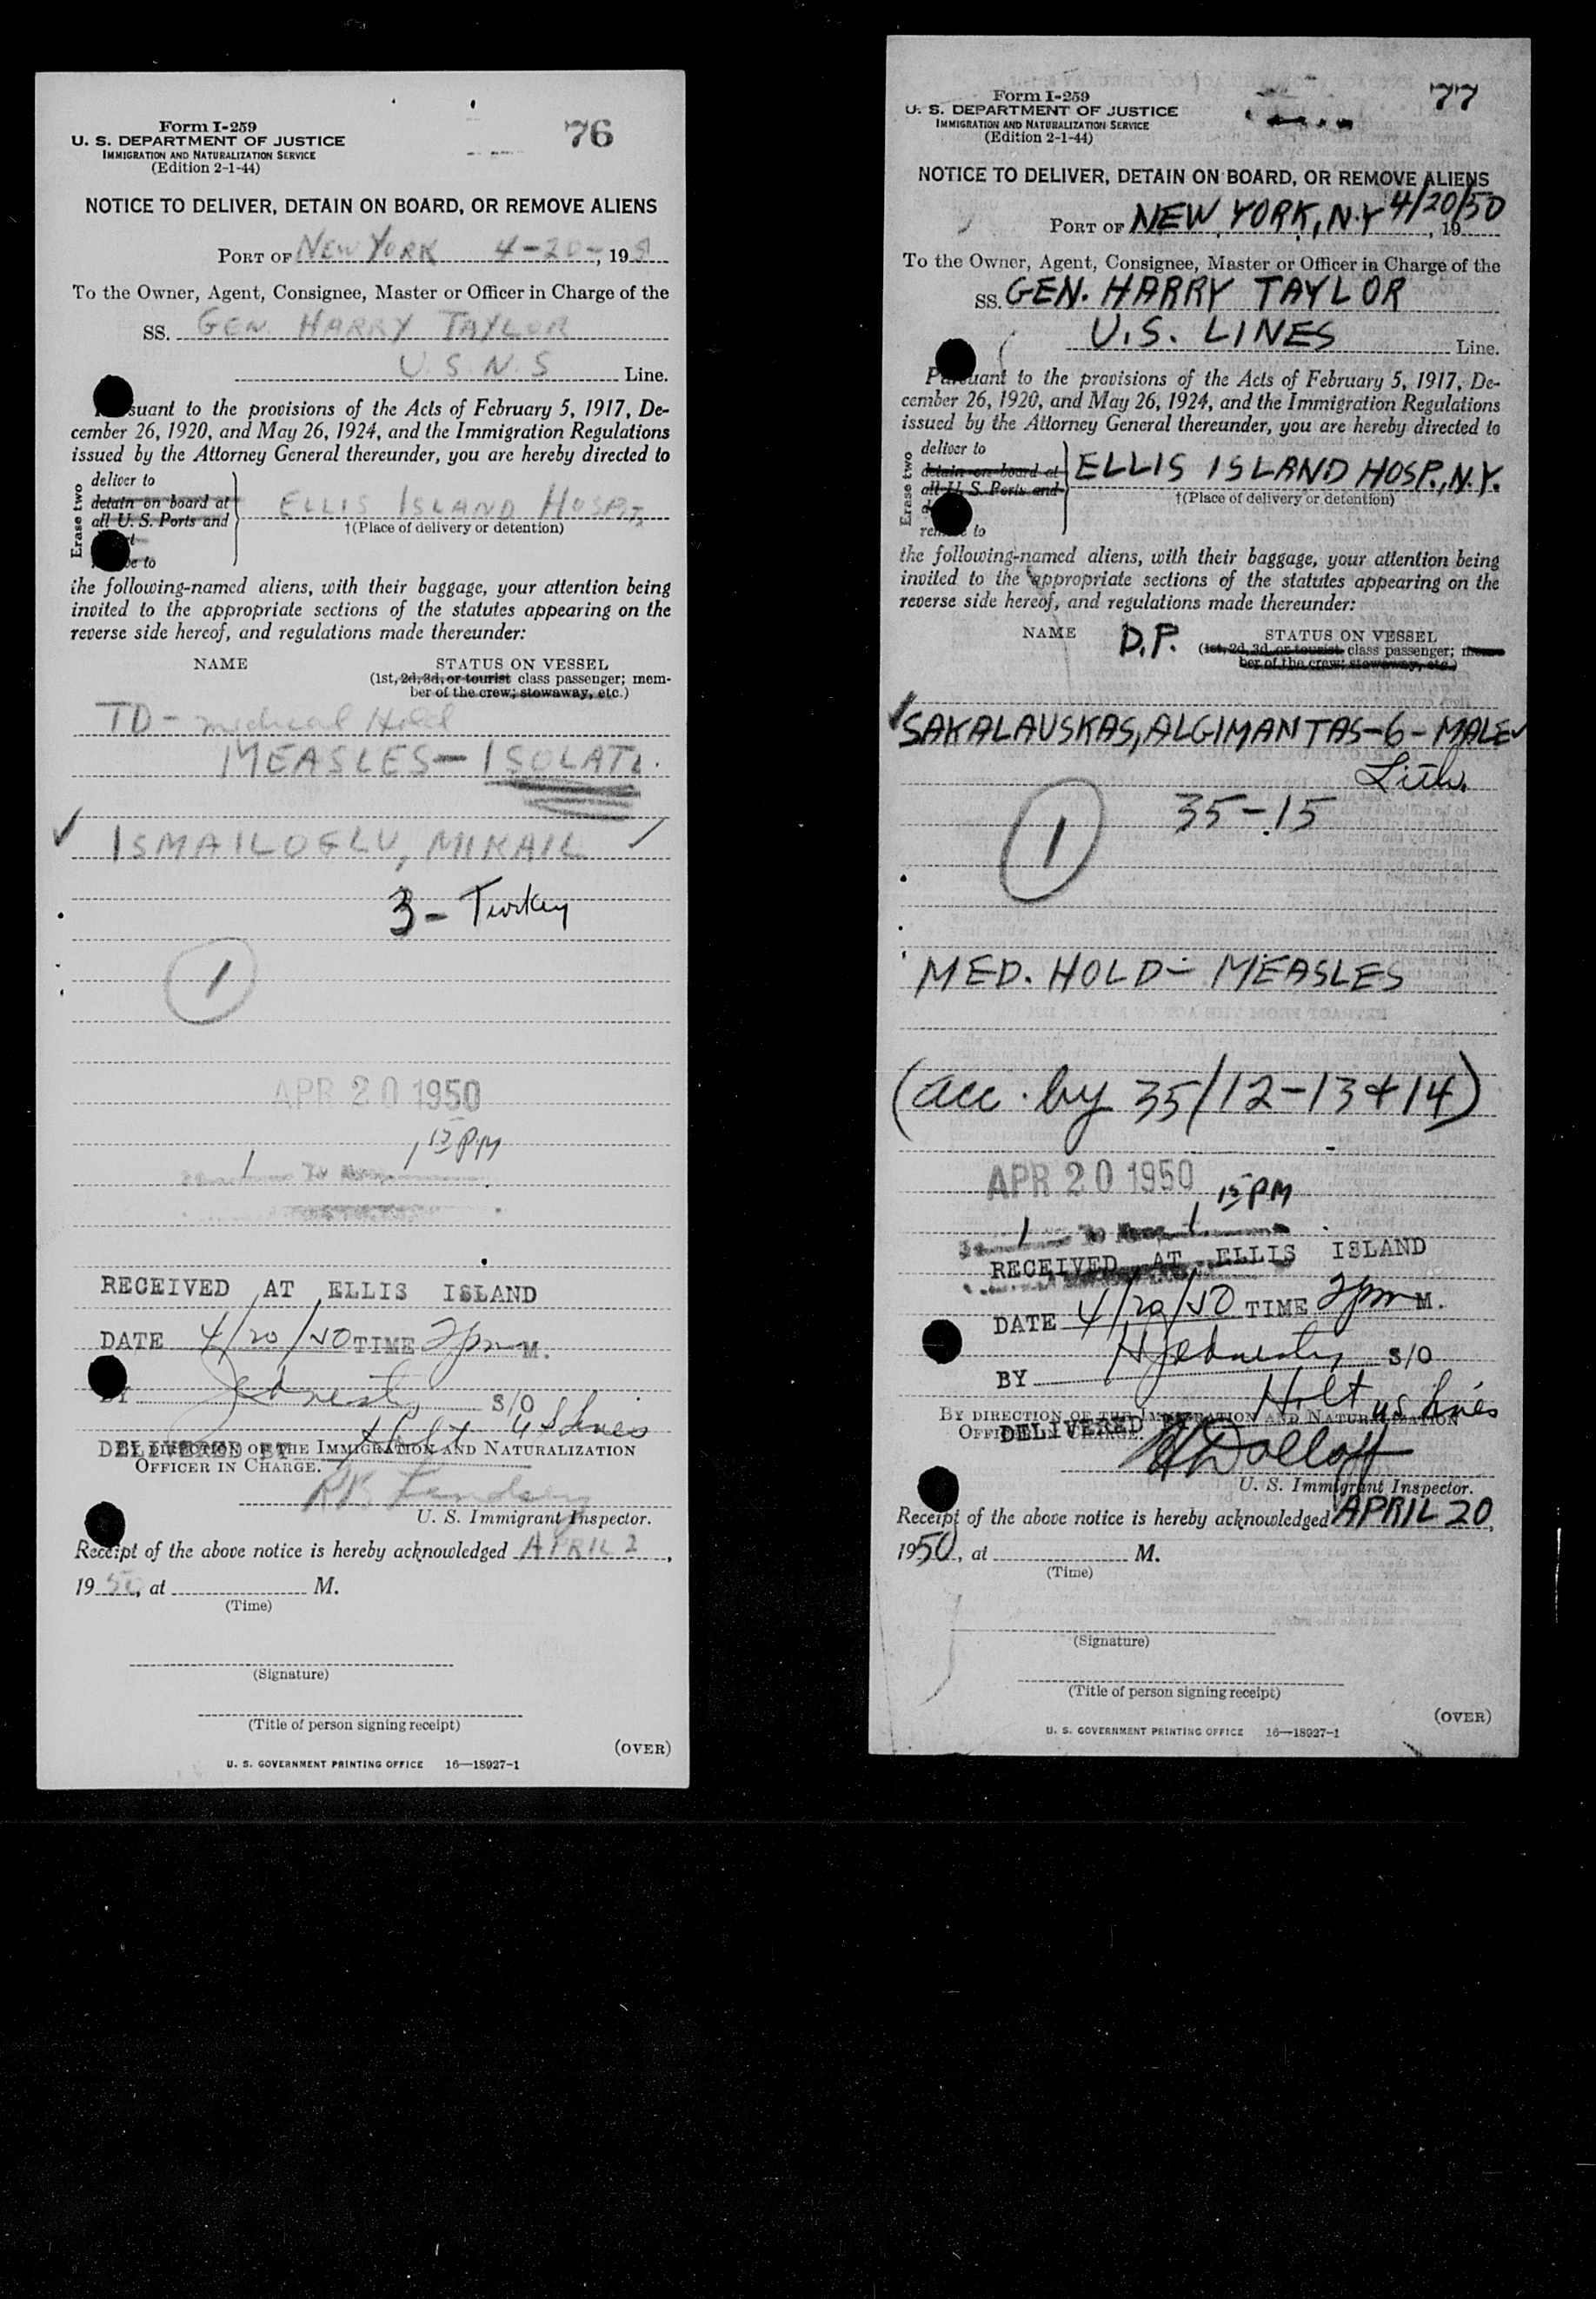 76
Form I-259
U. S. DEPARTMENT OF JUSTICE
IMMIGRATION AND NATURALIZATION SERVICE
(Edition 2-1-44)
NOTICE TO DELIVER, DETAIN ON BOARD, OR REMOVE ALIENS
PORT OF NEW YORK 4-20-, 19
To the Owner, Agent, Consignee, Master or Officer in Charge of the
SS. GEN. HARRY TAYLOR
U.S.N.S Line.
suant to the provisions of the Acts of February 5, 1917, De-
cember 26, 1920, and May 26, 1924, and the Immigration Regulations
issued by the Attorney General thereunder, you are hereby directed to
Erase two
deliver to
detain on board at
all U. S. Ports and
ELLIS ISLAND HOSP
†(Place of delivery or detention)
to
the following-named aliens, with their baggage, your attention being
invited to the appropriate sections of the statutes appearing on the
reverse side hereof, and regulations made thereunder:
NAME STATUS ON VESSEL
(1st, 2d, 3d, or tourist class passenger; mem-
ber of the crew; stowaway, etc.)
TD - medical Hold
MEASLES - ISOLAT.
✓ ISMAILOGLU, MIKAIL ✓
3 - Turkey
1
APR 20 1950
1 15 PM
1
RECEIVED AT ELLIS ISLAND
DATE 4/20/50 TIME 2pm M.
BY S/O
DELIVERED BY Holt U S Lines
BY DIRECTION OF THE IMMIGRATION AND NATURALIZATION
OFFICER IN CHARGE.
U. S. Immigrant Inspector.
Receipt of the above notice is hereby acknowledged APRIL 2,
1950, at M.
(Time)
(Signature)
(Title of person signing receipt)
(OVER)
U. S. GOVERNMENT PRINTING OFFICE 16—18927-1
77
Form I-259
U. S. DEPARTMENT OF JUSTICE
IMMIGRATION AND NATURALIZATION SERVICE
(Edition 2-1-44)
NOTICE TO DELIVER, DETAIN ON BOARD, OR REMOVE ALIENS
PORT OF NEW YORK, N.Y 4/20/50, 19
To the Owner, Agent, Consignee, Master or Officer in Charge of the
SS. GEN. HARRY TAYLOR
U.S. LINES Line.
Pursuant to the provisions of the Acts of February 5, 1917, De-
cember 26, 1920, and May 26, 1924, and the Immigration Regulations
issued by the Attorney General thereunder, you are hereby directed to
Erase two
deliver to
detain on board at
all U. S. Ports and
ELLIS ISLAND HOSP., N.Y.
†(Place of delivery or detention)
to
the following-named aliens, with their baggage, your attention being
invited to the appropriate sections of the statutes appearing on the
reverse side hereof, and regulations made thereunder:
NAME D.P. STATUS ON VESSEL
(1st, 2d, 3d, or tourist class passenger; mem-
ber of the crew; stowaway, etc.)
✓ SAKALAUSKAS, ALGIMANTAS - 6 - MALE ✓
Lith.
35-15
1
MED. HOLD - MEASLES
(acc. by 35/12-13+14)
APR 20 1950
1 15 PM
1
RECEIVED AT ELLIS ISLAND
DATE 4/20/50 TIME 2pm M.
BY S/O
DELIVERED Holt US Lines
BY DIRECTION OF THE IMMIGRATION AND NATURALIZATION
OFFICER IN CHARGE.
Dolloff
U. S. Immigrant Inspector.
Receipt of the above notice is hereby acknowledged APRIL 20,
1950, at M.
(Time)
(Signature)
(Title of person signing receipt)
(OVER)
U. S. GOVERNMENT PRINTING OFFICE 16—18927-1